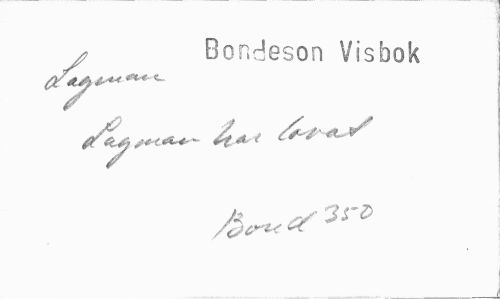 Bondeson Visbok
Lagman
Lagman har lovat
Bond 350